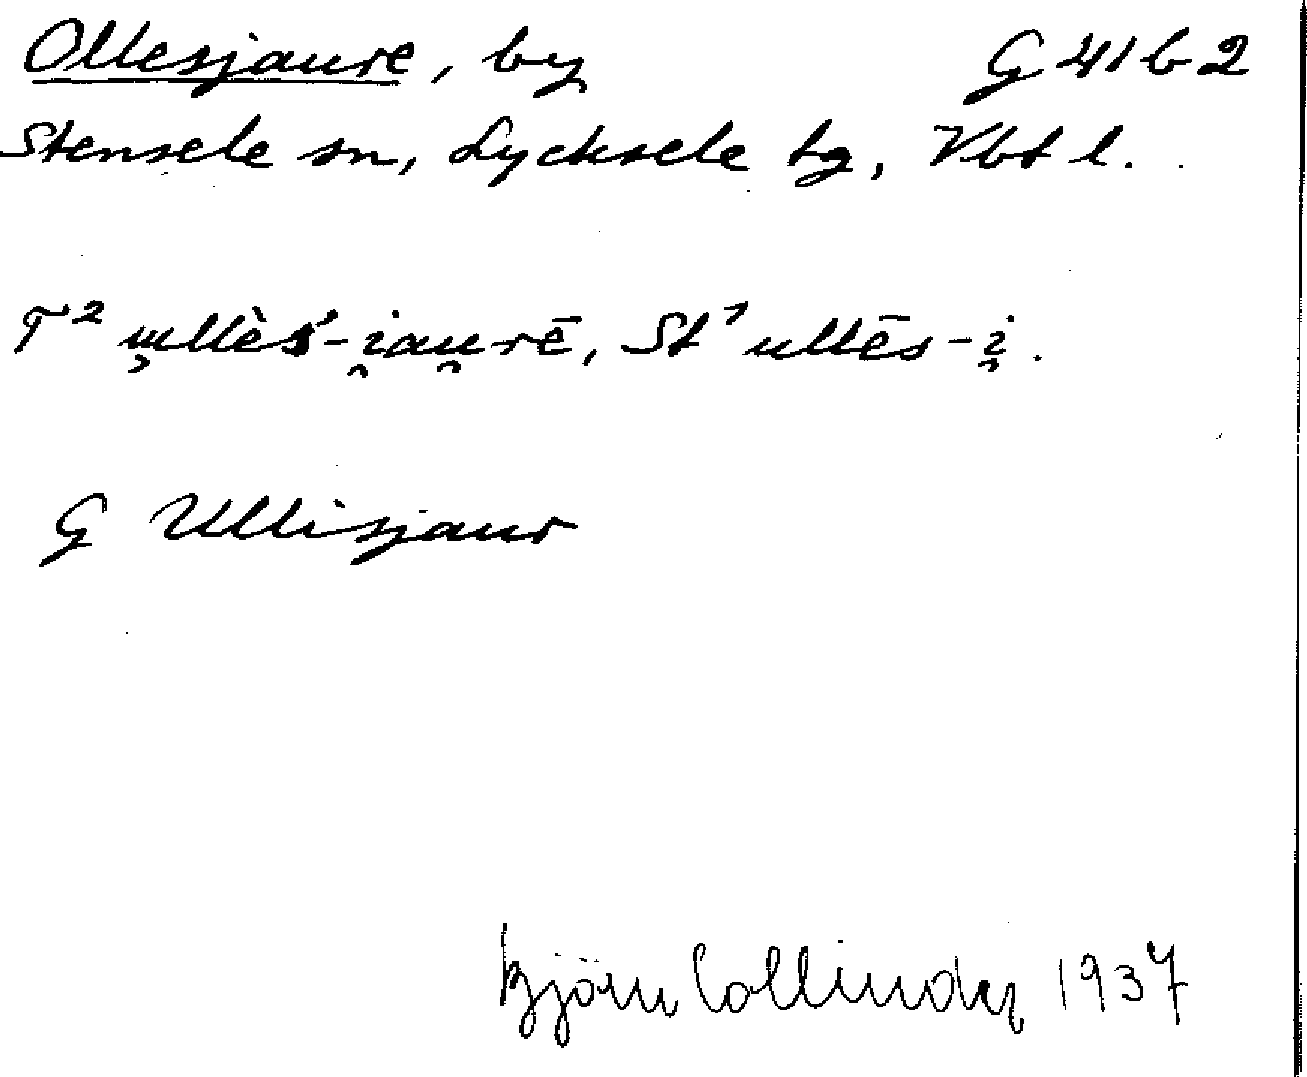 Ollesjaure, by G 41 b 2
Stensele sn, Lycksele tg, Vbt l.
T² u̹llès'-i̯au̯rē, St¹ ullēs-i̯.
G Ullisjaur
Björn Collinder 1937